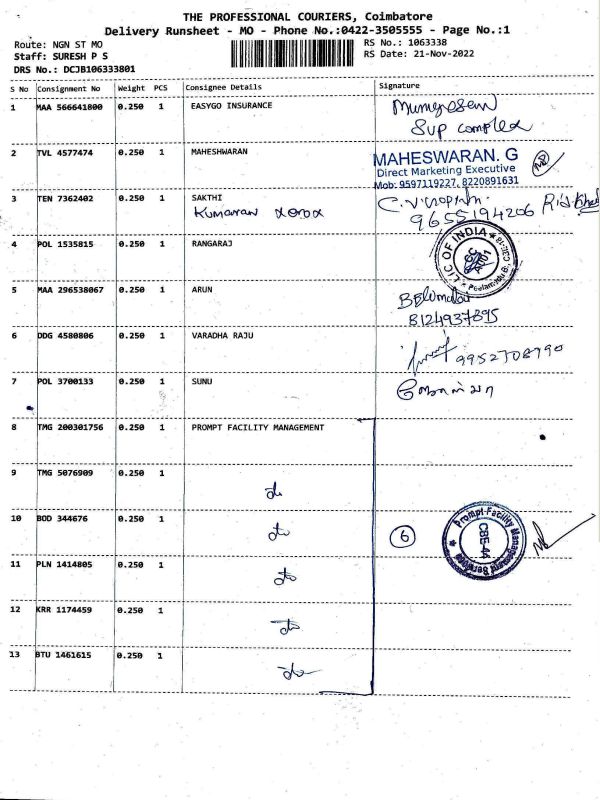 THE PROFESSIONAL COURIERS, Coimbatore
Delivery Runsheet - MO - Phone No.:0422-3505555 - Page No.:1
Route: NGN ST MO
RS No.: 1063338
Staff: SURESH P S
RS Date: 21-Nov-2022
DRS No.: DCJB106333801
S No Consignment No Weight PCS Consignee Details Signature
1 MAA 566641800 0.250 1 EASYGO INSURANCE
Sup complex
2 TVL 4577474 0.250 1 MAHESHWARAN
MAHESWARAN. G
Direct Marketing Executive
Mob: 9597119227, 8220891631
3 TEN 7362402 0.250 1 SAKTHI
Kumaran xerox
9655194206
4 POL 1535815 0.250 1 RANGARAJ
LIC OF INDIA
5 MAA 296538067 0.250 1 ARUN
8124937895
6 DDG 4580806 0.250 1 VARADHA RAJU
9952708790
7 POL 3700133 0.250 1 SUNU
8 TMG 200301756 0.250 1 PROMPT FACILITY MANAGEMENT
9 TMG 5076909 0.250 1
do
10 BOD 344676 0.250 1
do
6
Prompt Facility Management Services
CBE-44
11 PLN 1414805 0.250 1
do
12 KRR 1174459 0.250 1
do
13 BTU 1461615 0.250 1
do